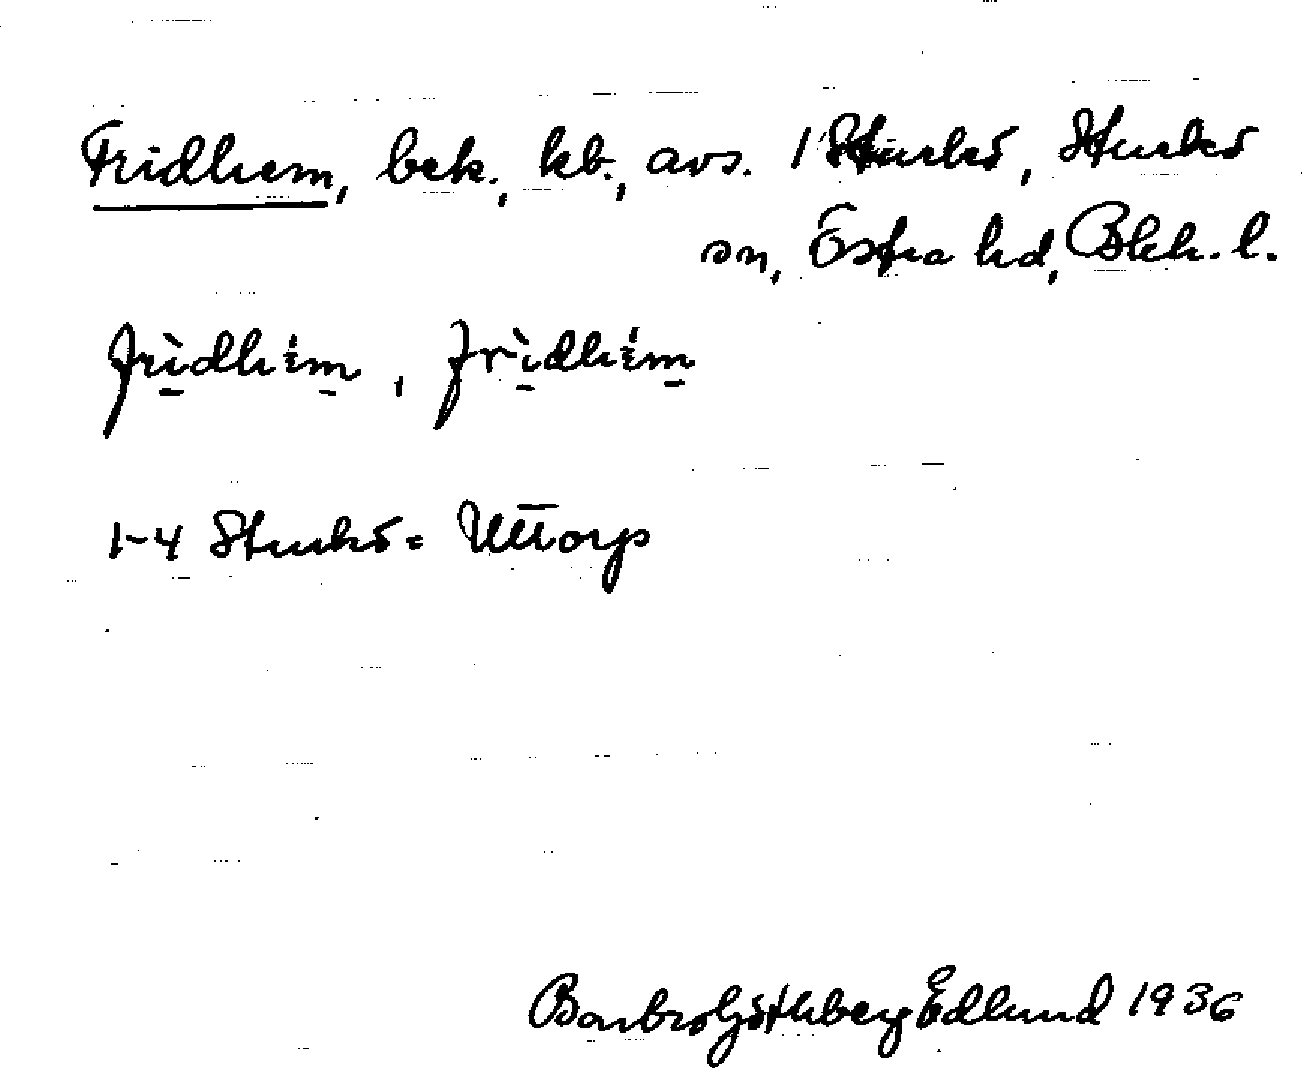 Fridhem, bek., kb., avs. 1 Sturkö, Sturkö
sn, Östra hd, Blek. l.
fridhem, fridhem
1-4 Sturkö = Uttorp
Barbro Götheberg Edlund 1936